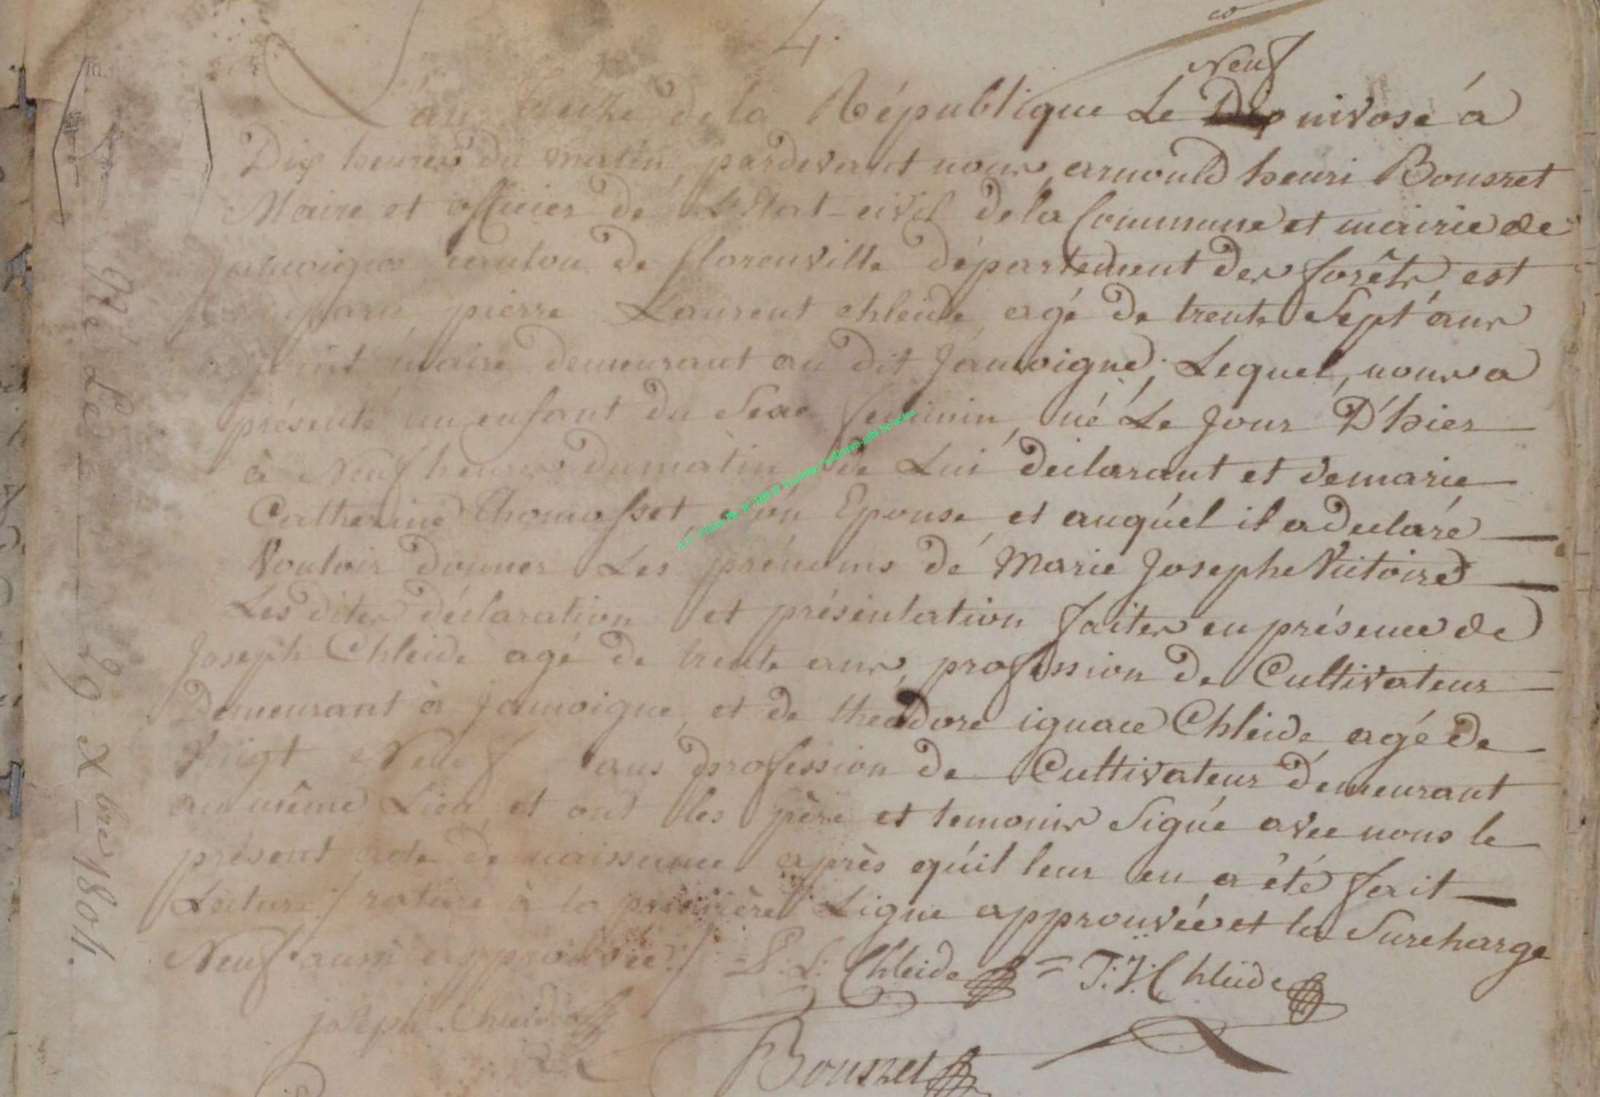 4.
Neuf
L'an treize de la République Le Dix nivose á
Dix heures du matin, pardevant nous arnould henri Bousret
Maire et officier de L'Etat-civil de la Commune et mairie de
jamoigne canton de florenville département des forêts est
comparu pierre Laurent Chleide, agé de trente Sept ans
adjoint maire demeurant au dit Jamoigne; Lequel, nous a
présenté un enfant du Sexe feminin, né Le Jour D'hier
à Neuf heures du matin, de Lui déclarant et de marie
Catherine Thomasset, son Epouse et auquel il a déclaré
Vouloir donner Les prénoms de Marie Josephe Victoire
Les dites déclaration et présentation faites en présence de
Joseph Chleide agé de trente ans, profession de Cultivateur
Demeurant à Jamoigne, et de theodore ignace Chleide agé de
Vingt Neuf ans profession de Cultivateur demeurant
au même Lieu et ont les père et temoins Signé avec nous le
présent acte de naissance après qu'il leur en a été fait
Lecture / rature à la première Ligne approuvée et la Surcharge
Neuf aussi approuvée /. P. L. Chleide = T. J. Chleide
joseph Chleide
Bousret
Né Le 29 Xbre 1804.